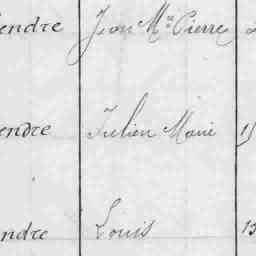 endre Jean Mie Pierre 2
endre Julien Marie 15
ndre Louis 13